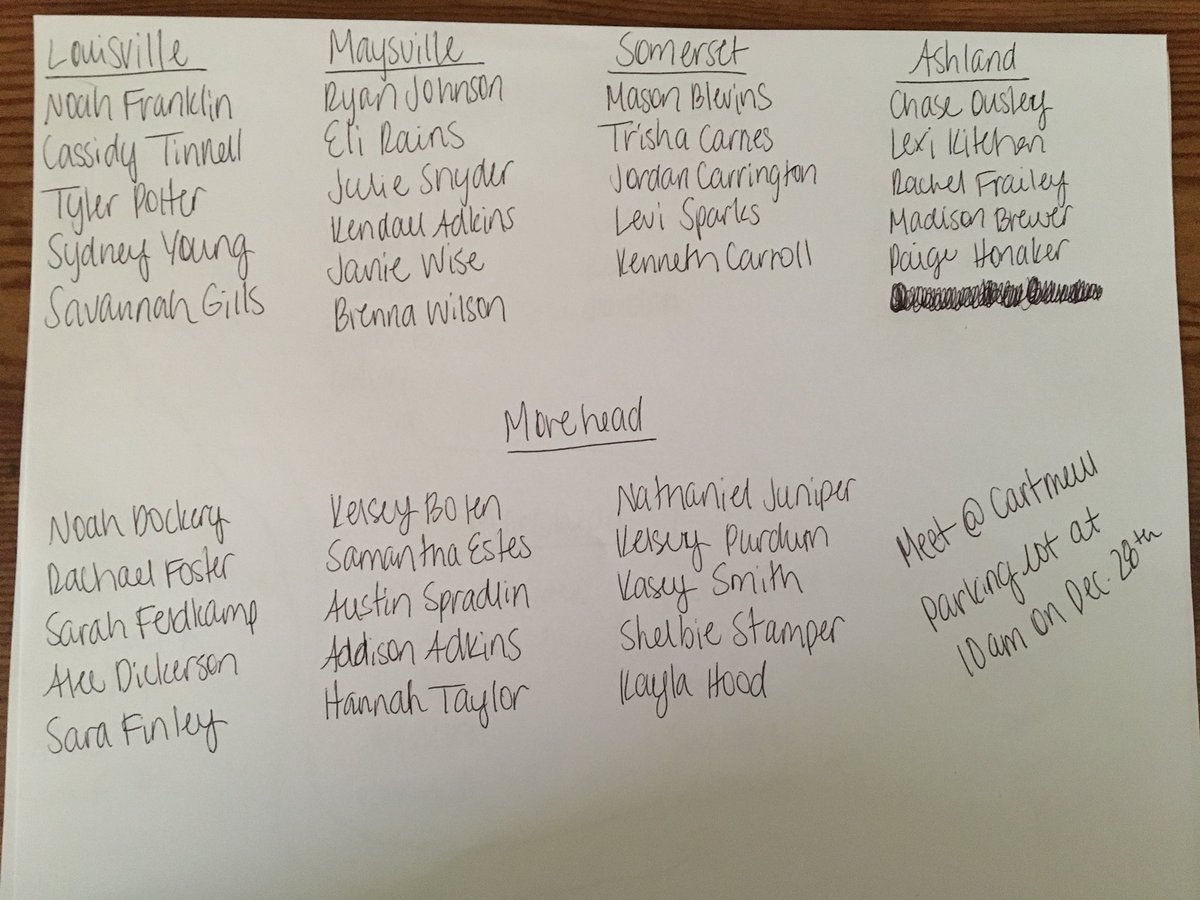 Louisville
Noah Franklin
Cassidy Tinnell
Tyler Potter
Sydney Young
Savannah Gills
Maysville
Ryan Johnson
Eli Rains
Julie Snyder
Kendall Adkins
Janie Wise
Brenna Wilson
Somerset
Mason Blevins
Trisha Carnes
Jordan Carrington
Levi Sparks
Kenneth Carroll
Ashland
Chase Ousley
Lexi Kitchen
Rachel Frailey
Madison Brewer
Paige Honaker
Morehead
Noah Dockery
Rachael Foster
Sarah Feldkamp
Alec Dickerson
Sara Finley
Kelsey Bolen
Samantha Estes
Austin Spradlin
Addison Adkins
Hannah Taylor
Nathaniel Juniper
Kelsey Purdum
Kasey Smith
Shelbie Stamper
Kayla Hood
Meet @ Cartmell
parking lot at
10am on Dec. 28th